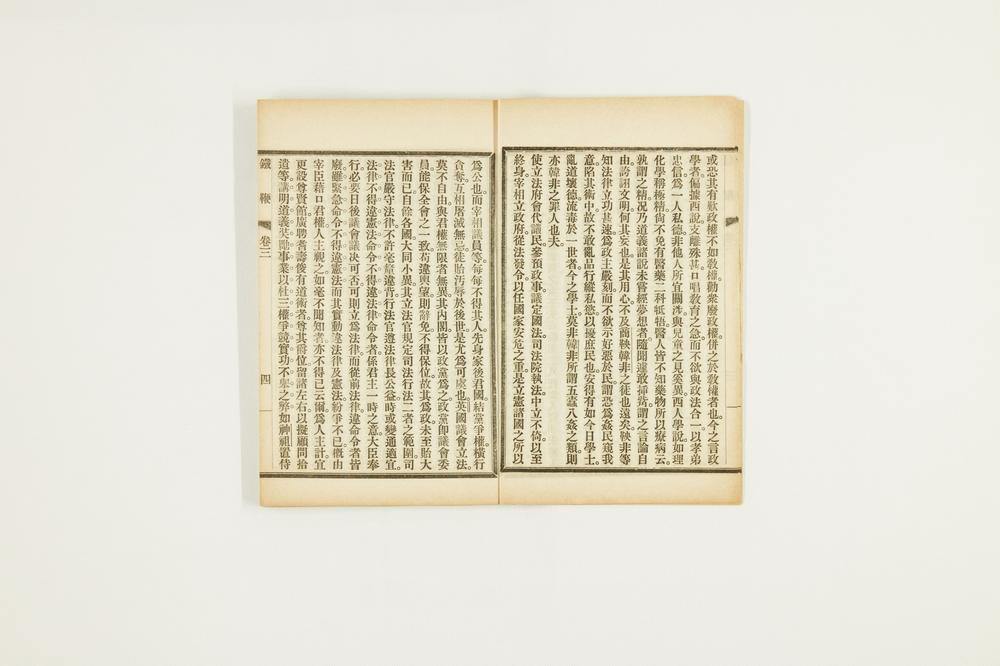 或恐其有歎政權不如敎權勸衆廢政權。併之於敎權者也。今之言政
學者。偏據西說。支離殊甚。口唱敎育之急。而不欲與政法合一。以孝弟
忠信。爲一人私德。非他人所宜關涉。與兒童之見奚異。西人學說。如理
化學稱極精。尙不免有醫藥二科牴牾。醫人皆不知藥物所以療病云。
孰謂之精。況乃道義諸說。未嘗經夢想者。隨聞遽敢揷筠。謂之言論自
由。誇詡文明。何其妄也。是其用心。不及商鞅韓非之徒也遠矣。鞅非等
知法律立功甚速。爲政主嚴刻。而不欲示好惡於民。謂恐爲姦民窺我
意。陷其術中。故不敢亂品行。縱私慾。以擾庶民也。安得有如今日學士。
亂道壞德。流毒於一世者。今之學士。莫非韓非所謂五蠹八姦之類。則
亦韓非之罪人也夫。
使立法府會代議民。參預政事。議定國法。司法院執法。中立不倚。以至
終身。宰相立政府。從法發令。以任國家安危之重。是立憲諸國之所以
爲公也。而宰相議員等。每每不得其人。先身家後君國。結黨爭權。橫行
貪奪。互相屠滅無忌。徒貽汚辱於後世。是尤爲可處也。英國議會立法。
莫不自由。與君權無限者無異。其內閣。皆以政黨爲之。政黨卽議會委
員。能保全會之一致。苟違輿望。則辭免不得保位。故其爲政。未至貽大
害而已。自餘各國。大同小異。其立法官規定司法行法二者之範圍。司
法官嚴守法律。不許毫釐違背。行法官遵法律。長公益。時或變通適宜。
法律不得違憲法。命令不得違法律。命令者。係君主一時之意。大臣奉
行。必要日後議會議決可否。可則立爲法律。而從前法律違命令者皆
廢。雖緊急命令。不得違憲法。而其實動違法律及憲法。紛爭不已。槪由
宰臣藉口君權。人主視之。如毫不聞知者。亦不得已云爾。爲人主計。宜
更設尊賢館。廣聘耆壽俊有道術者。尊其爵位。留諸左右。以擬顧問拾
遺等。講明道義。奬勵事業。以杜三權爭競實功不舉之弊。如神祖置侍
鐵鞭 卷三 四